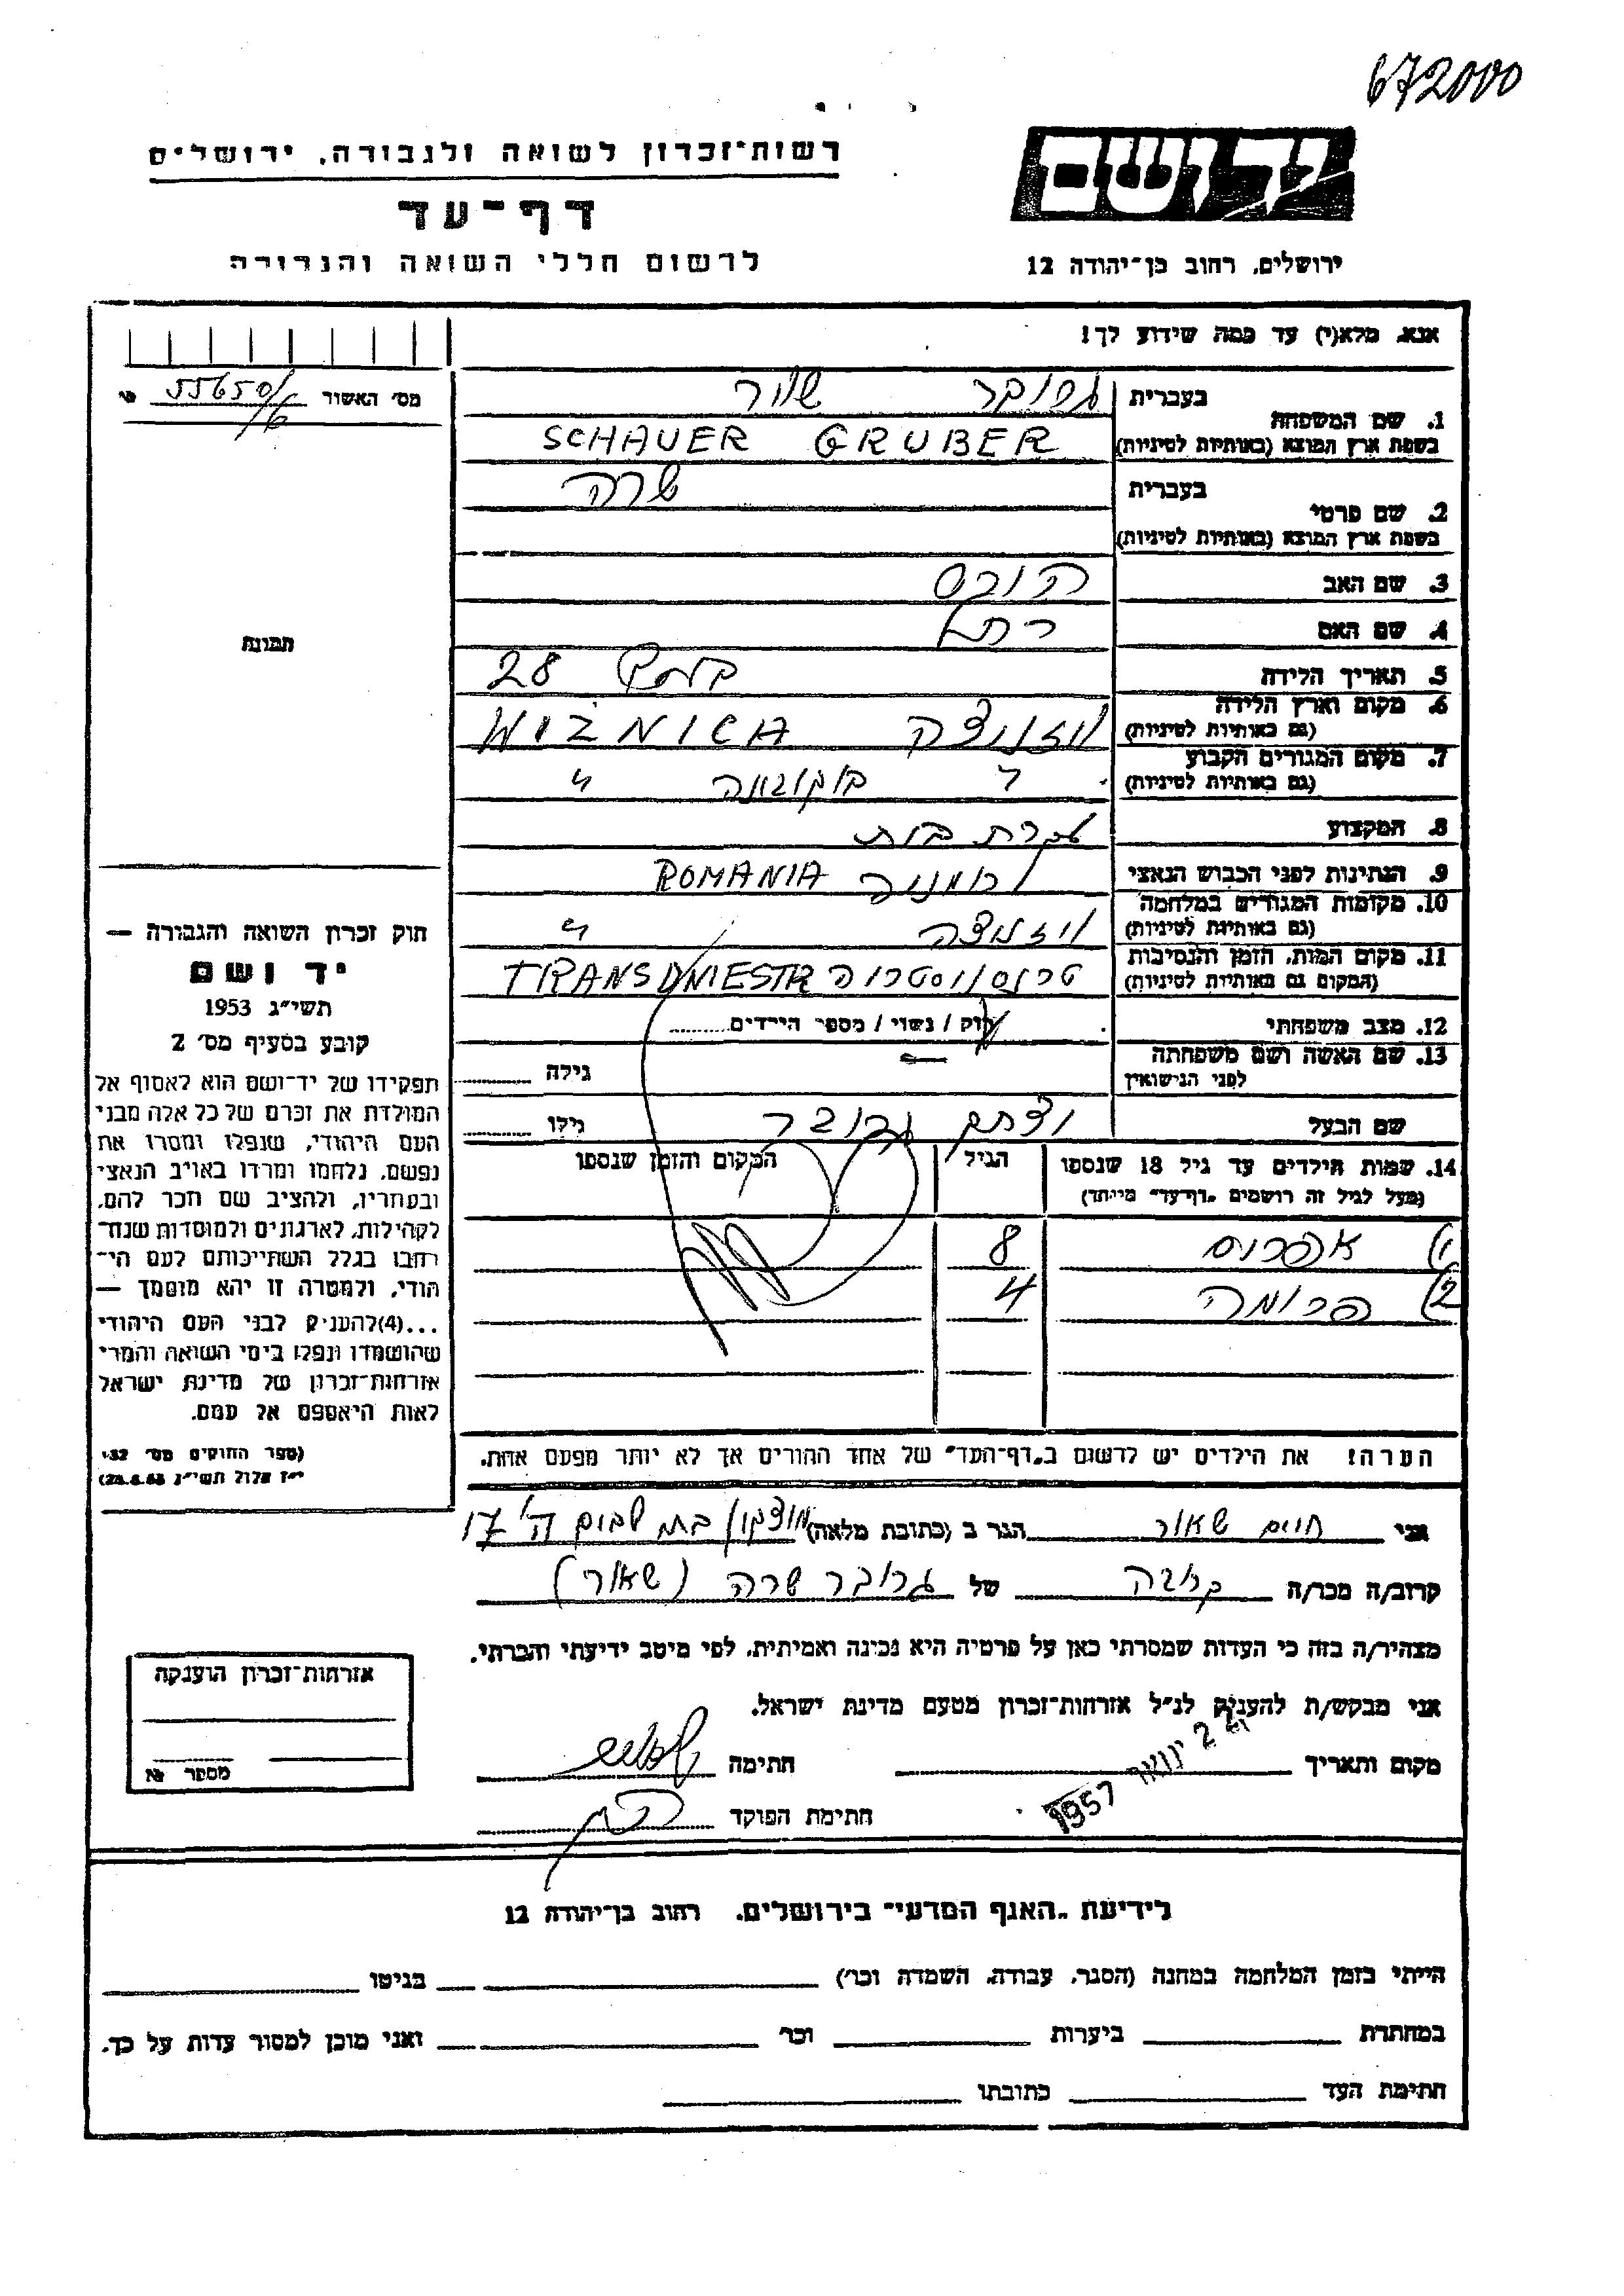 672000
יד ושם
ירושלים, רחוב בן־יהודה 12
רשות־זכרון לשואה ולגבורה, ירושלים
דף־עד
לרשום חללי השואה והגבורה
אנא, מלא(י) עד כמה שידוע לך!
מס׳ האשור
בעברית גרובר שאור
1. שם המשפחה
בשפת ארץ המוצא (באותיות לטיניות) SCHAUER GRUBER
בעברית שרה
2. שם פרטי
בשפת ארץ המוצא (באותיות לטיניות)
3. שם האב
4. שם האם רחל
תמונה
5. תאריך הלידה 28
6. מקום וארץ הלידה ויזניצה WIZNICA
(גם באותיות לטיניות)
7. מקום המגורים הקבוע " בוקובינה "
(גם באותיות לטיניות)
8. המקצוע עקרת בית
9. הנתינות לפני הכבוש הנאצי רומניה ROMANIA
10. מקומות המגורים במלחמה ויזניצה "
(גם באותיות לטיניות)
11. מקום המות, הזמן והנסיבות טרנסניסטריה TRANSDNIESTR
(המקום גם באותיות לטיניות)
12. מצב משפחתי רוק / נשוי / מספר הילדים
13. שם האשה ושם משפחתה גילה
לפני הנישואין
שם הבעל גרובר גילו
14. שמות הילדים עד גיל 18 שנספו הגיל המקום והזמן שנספו
(מעל לגיל זה רושמים „דף־עד״ מיוחד)
1) אפרים 8
2) פרומה 4
הערה! את הילדים יש לרשום ב„דף־העד״ של אחד ההורים אך לא יותר מפעם אחת.
חוק זכרון השואה והגבורה —
יד ושם
תשי״ג 1953
קובע בסעיף מס׳ 2
תפקידו של יד־ושם הוא לאסוף אל
המולדת את זכרם של כל אלה מבני
העם היהודי, שנפלו ומסרו את
נפשם, נלחמו ומרדו באויב הנאצי
ובעוזריו, ולהציב שם וזכר להם,
לקהילות, לארגונים ולמוסדות שנח־
רבו בגלל השתייכותם לעם הי־
הודי, ולמטרה זו יהא מוסמך —
...(4) להעניק לבני העם היהודי
שהושמדו ונפלו בימי השואה והמרי
אזרחות־זכרון של מדינת ישראל
לאות היאספם אל עמם.
(ספר החוקים מס׳ 132,
י״ז אלול תשי״ג 28.8.53)
אני חיים שאור הגר ב (כתובת מלאה) מוצקין 17
קרוב/ה מכר/ה קרובה של גרובר שרה (שאור)
מצהיר/ה בזה כי העדות שמסרתי כאן על פרטיה היא נכונה ואמיתית, לפי מיטב ידיעתי והכרתי.
אני מבקש/ת להעניק לנ״ל אזרחות־זכרון מטעם מדינת ישראל.
מקום ותאריך 2 ינואר 1957 חתימה
חתימת הפוקד
אזרחות־זכרון הוענקה
מספר №
לידיעת „האגף המדעי״ בירושלים, רחוב בן־יהודה 12
הייתי בזמן המלחמה במחנה (הסגר, עבודה, השמדה וכו׳) בגיטו
במחתרת ביערות וכו׳ ואני מוכן למסור עדות על כך.
חתימת העד כתובתו